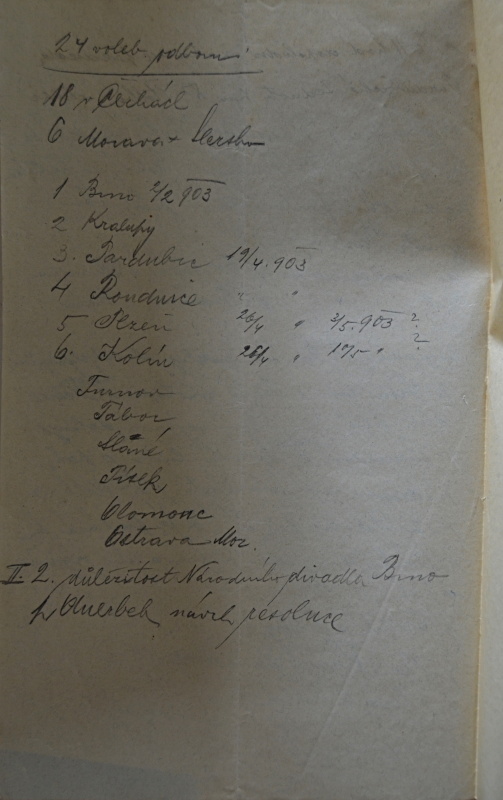 24 voleb. odborů
18 v Čechách
6 Morava + Slezsko
1 Brno 2/2 903
2 Kralupy
3. Pardubic 19/4. 903
4 Roudnice " "
5 Plzeň 26/4 " 3/5. 903 ?
6. Kolín 26/4 " 10/5 " ?
Turnov
Tábor
Slané
Písek
Olomouc
Ostrava Mor.
II. 2. důležitost Národního divadla Brno
p Auerbek návrh resoluce